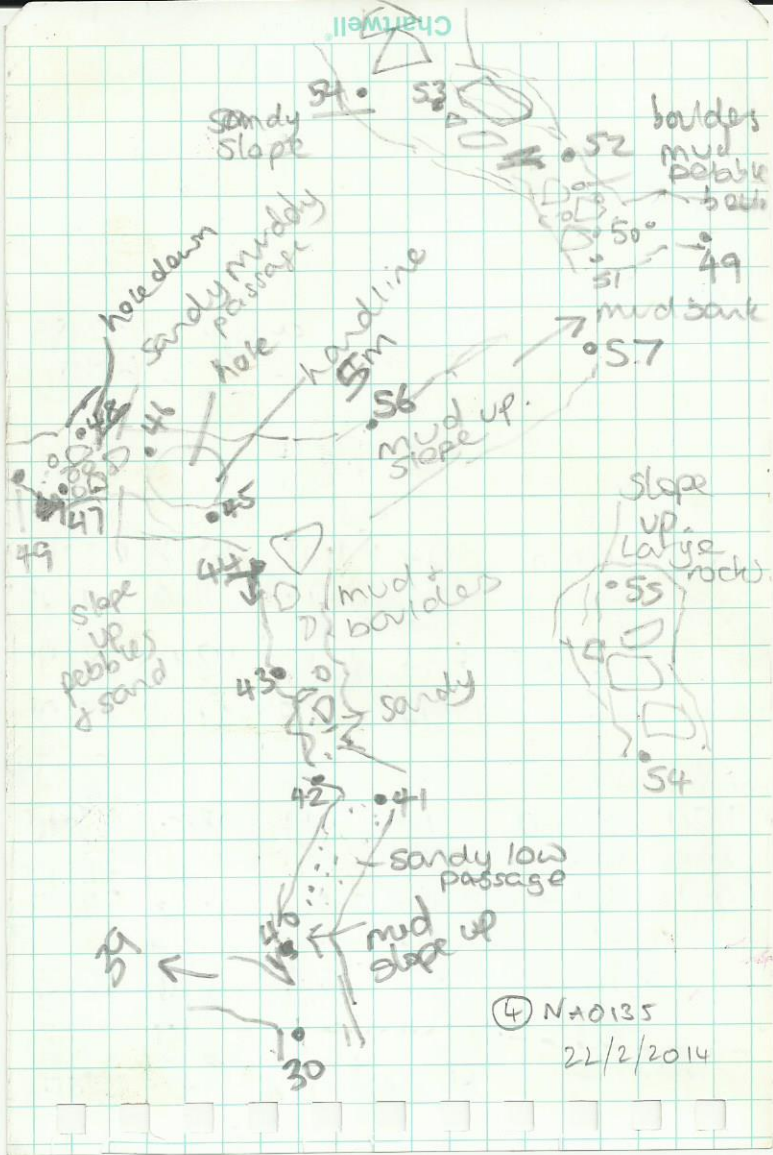 Chartwell
54
53
sandy
slope
52
bouldes
mud
pebble
50
51
49
mud bank
57
hole down
sandy muddy
passage
hole
handline
5m
56
mud up.
slope
48
46
47
49
45
44
slope
up.
Large
rocks
55
mud +
bouldes
slope
up
pebbles
+ sand
43
sandy
54
42
41
sandy low
passage
40
mud
slope up
39
30
④ NA0135
22/2/2014